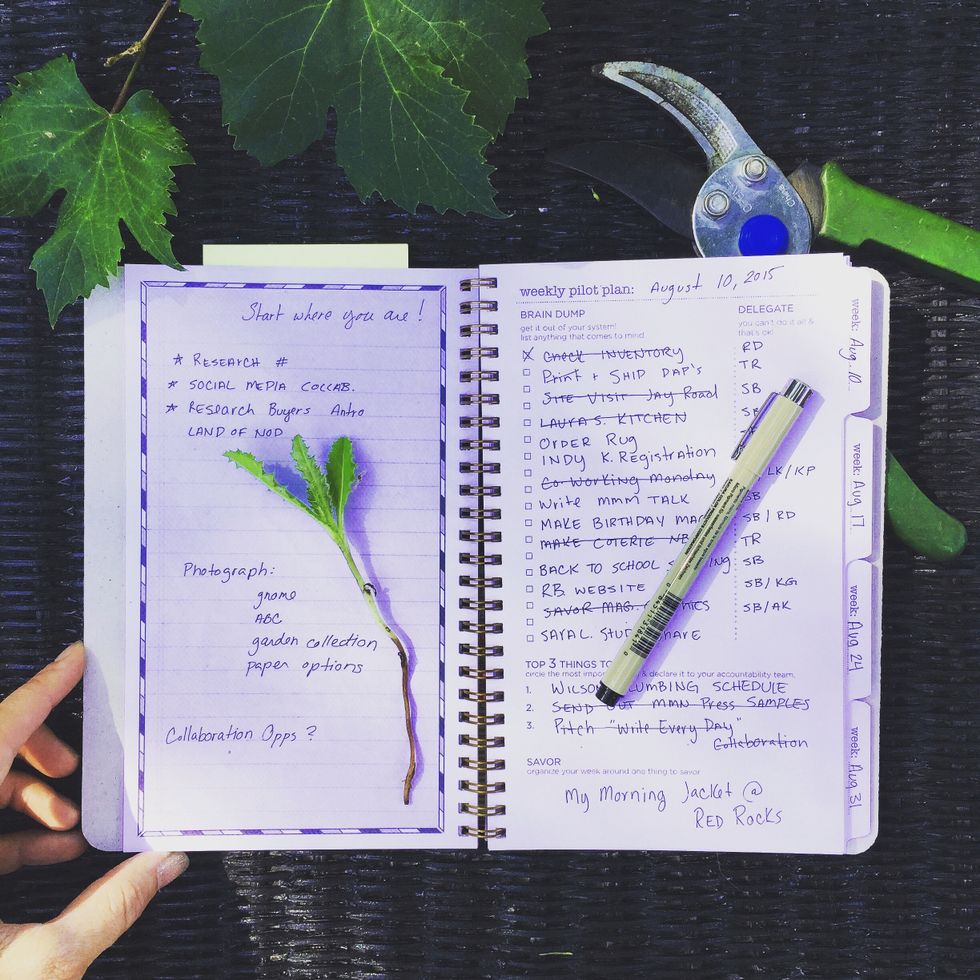 Start where you are!
* RESEARCH #
* SOCIAL MEDIA COLLAB.
* RESEARCH Buyers Antro
LAND OF NOD
Photograph:
gnome
ABC
garden collection
paper options
Collaboration Opps?
weekly pilot plan: August 10, 2015
BRAIN DUMP
get it out of your system!
list anything that comes to mind.
Check INVENTORY
Print + SHIP DAP'S
SITE VISIT Jay Road
LAURA S. KITCHEN
ORDER RUG
INDY K. Registration
Co-Working Monday
Write MMM TALK
MAKE BIRTHDAY
MAKE COTERIE
BACK TO SCHOOL
RB WEBSITE
SAVOR MAG.
SARA L.
DELEGATE
you can't do it all &
that's ok!
RD
TR
SB
LK/KP
SB
SB/RD
TR
SB
SB/KG
SB/AK
TOP 3 THINGS TO
circle the most & declare it to your accountability team.
1. SCHEDULE
2. SEND OUT MMN Press SAMPLES
3. Pitch "Write Every Day"
Collaboration
SAVOR
organize your week around one thing to savor
My Morning Jacket @
RED ROCKS
week: Aug. 10
week: Aug. 17
week: Aug 24
week: Aug 31